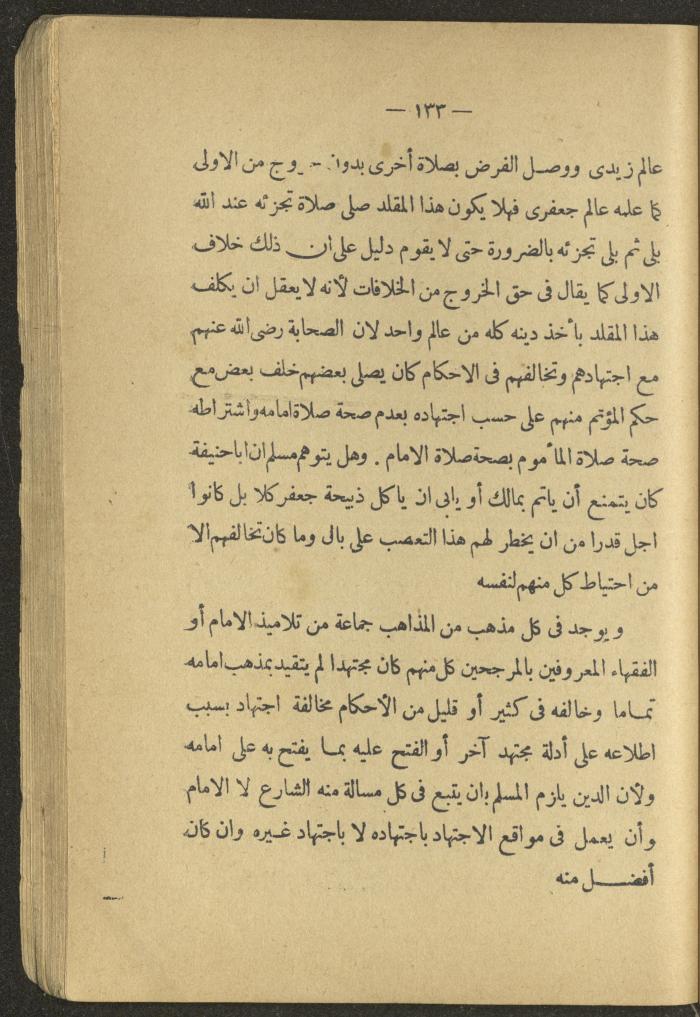 — ١٣٣ —
عالم زيدى ووصل الفرض بصلاة أخرى بدون من الاولى
كما علمه عالم جعفرى فهلا يكون هذا المقلد صلى صلاة تجزئه عند الله
بلى ثم بلى تجزئه بالضرورة حتى لا يقوم دليل على ان ذلك خلاف
الاولى كما يقال فى حق الخروج من الخلافات لأنه لا يعقل ان يكلف
هذا المقلد بأخذ دينه كله من عالم واحد لان الصحابة رضى الله عنهم
مع اجتهادهم وتخالفهم فى الاحكام كان يصلى بعضهم خلف بعض مع
حكم المؤتم منهم على حسب اجتهاده بعدم صحة صلاة امامه واشتراطه
صحة صلاة المأموم بصحة صلاة الامام . وهل يتوهم مسلم ان اباحنيفة
كان يتمنع أن ياتم بمالك أو يابى ان ياكل ذبيحة جعفر كلا بل كانوا
اجل قدرا من ان يخطر لهم هذا التعصب على بال وما كان تخالفهم الا
من احتياط كل منهم لنفسه
ويوجد فى كل مذهب من المذاهب جماعة من تلاميذ الامام أو
الفقهاء المعروفين بالمرجحين كل منهم كان مجتهدا لم يتقيد بمذهب امامه
تماما وخالفه فى كثير أو قليل من الأحكام مخالفة اجتهاد بسبب
اطلاعه على أدلة مجتهد آخر أو الفتح عليه بما يفتح به على امامه
ولأن الدين يلزم المسلم بان يتبع فى كل مسالة منه الشارع لا الامام
وأن يعمل فى مواقع الاجتهاد باجتهاده لا باجتهاد غيره وان كان
أفضل منه